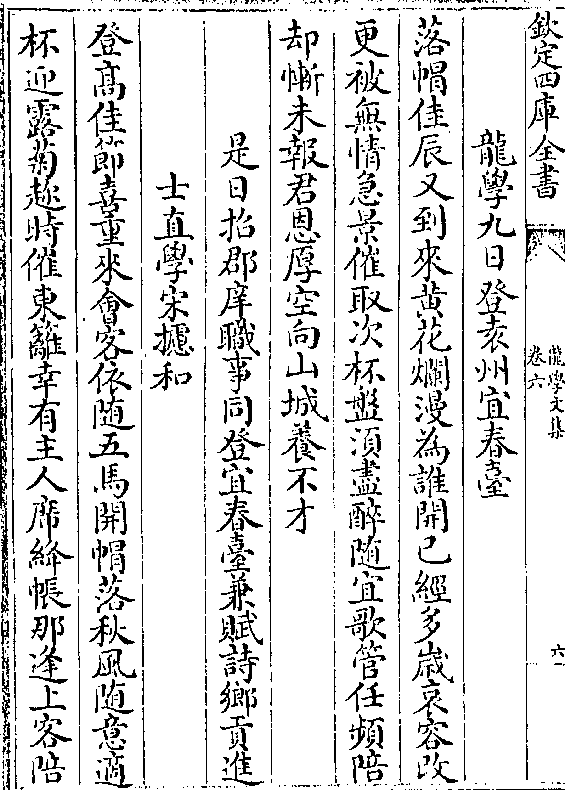 欽定四庫全書
龍學文集
卷六
六
龍學九日登袁州宜春臺
落帽佳辰又到來黄花爛漫為誰開已經多歳哀容改
更被無情急景催取次杯盤湏盡醉随宜歌管任頻陪
却慚未報君恩厚空向山城養不才
是日招郡庠職事同登宜春臺兼賦詩鄉貢進
士直學宋攄和
登髙佳節喜重來㑹客依随五馬開帽落秋風随意適
杯迎露菊趂時催東籬幸有主人席絳帳那逢上客陪